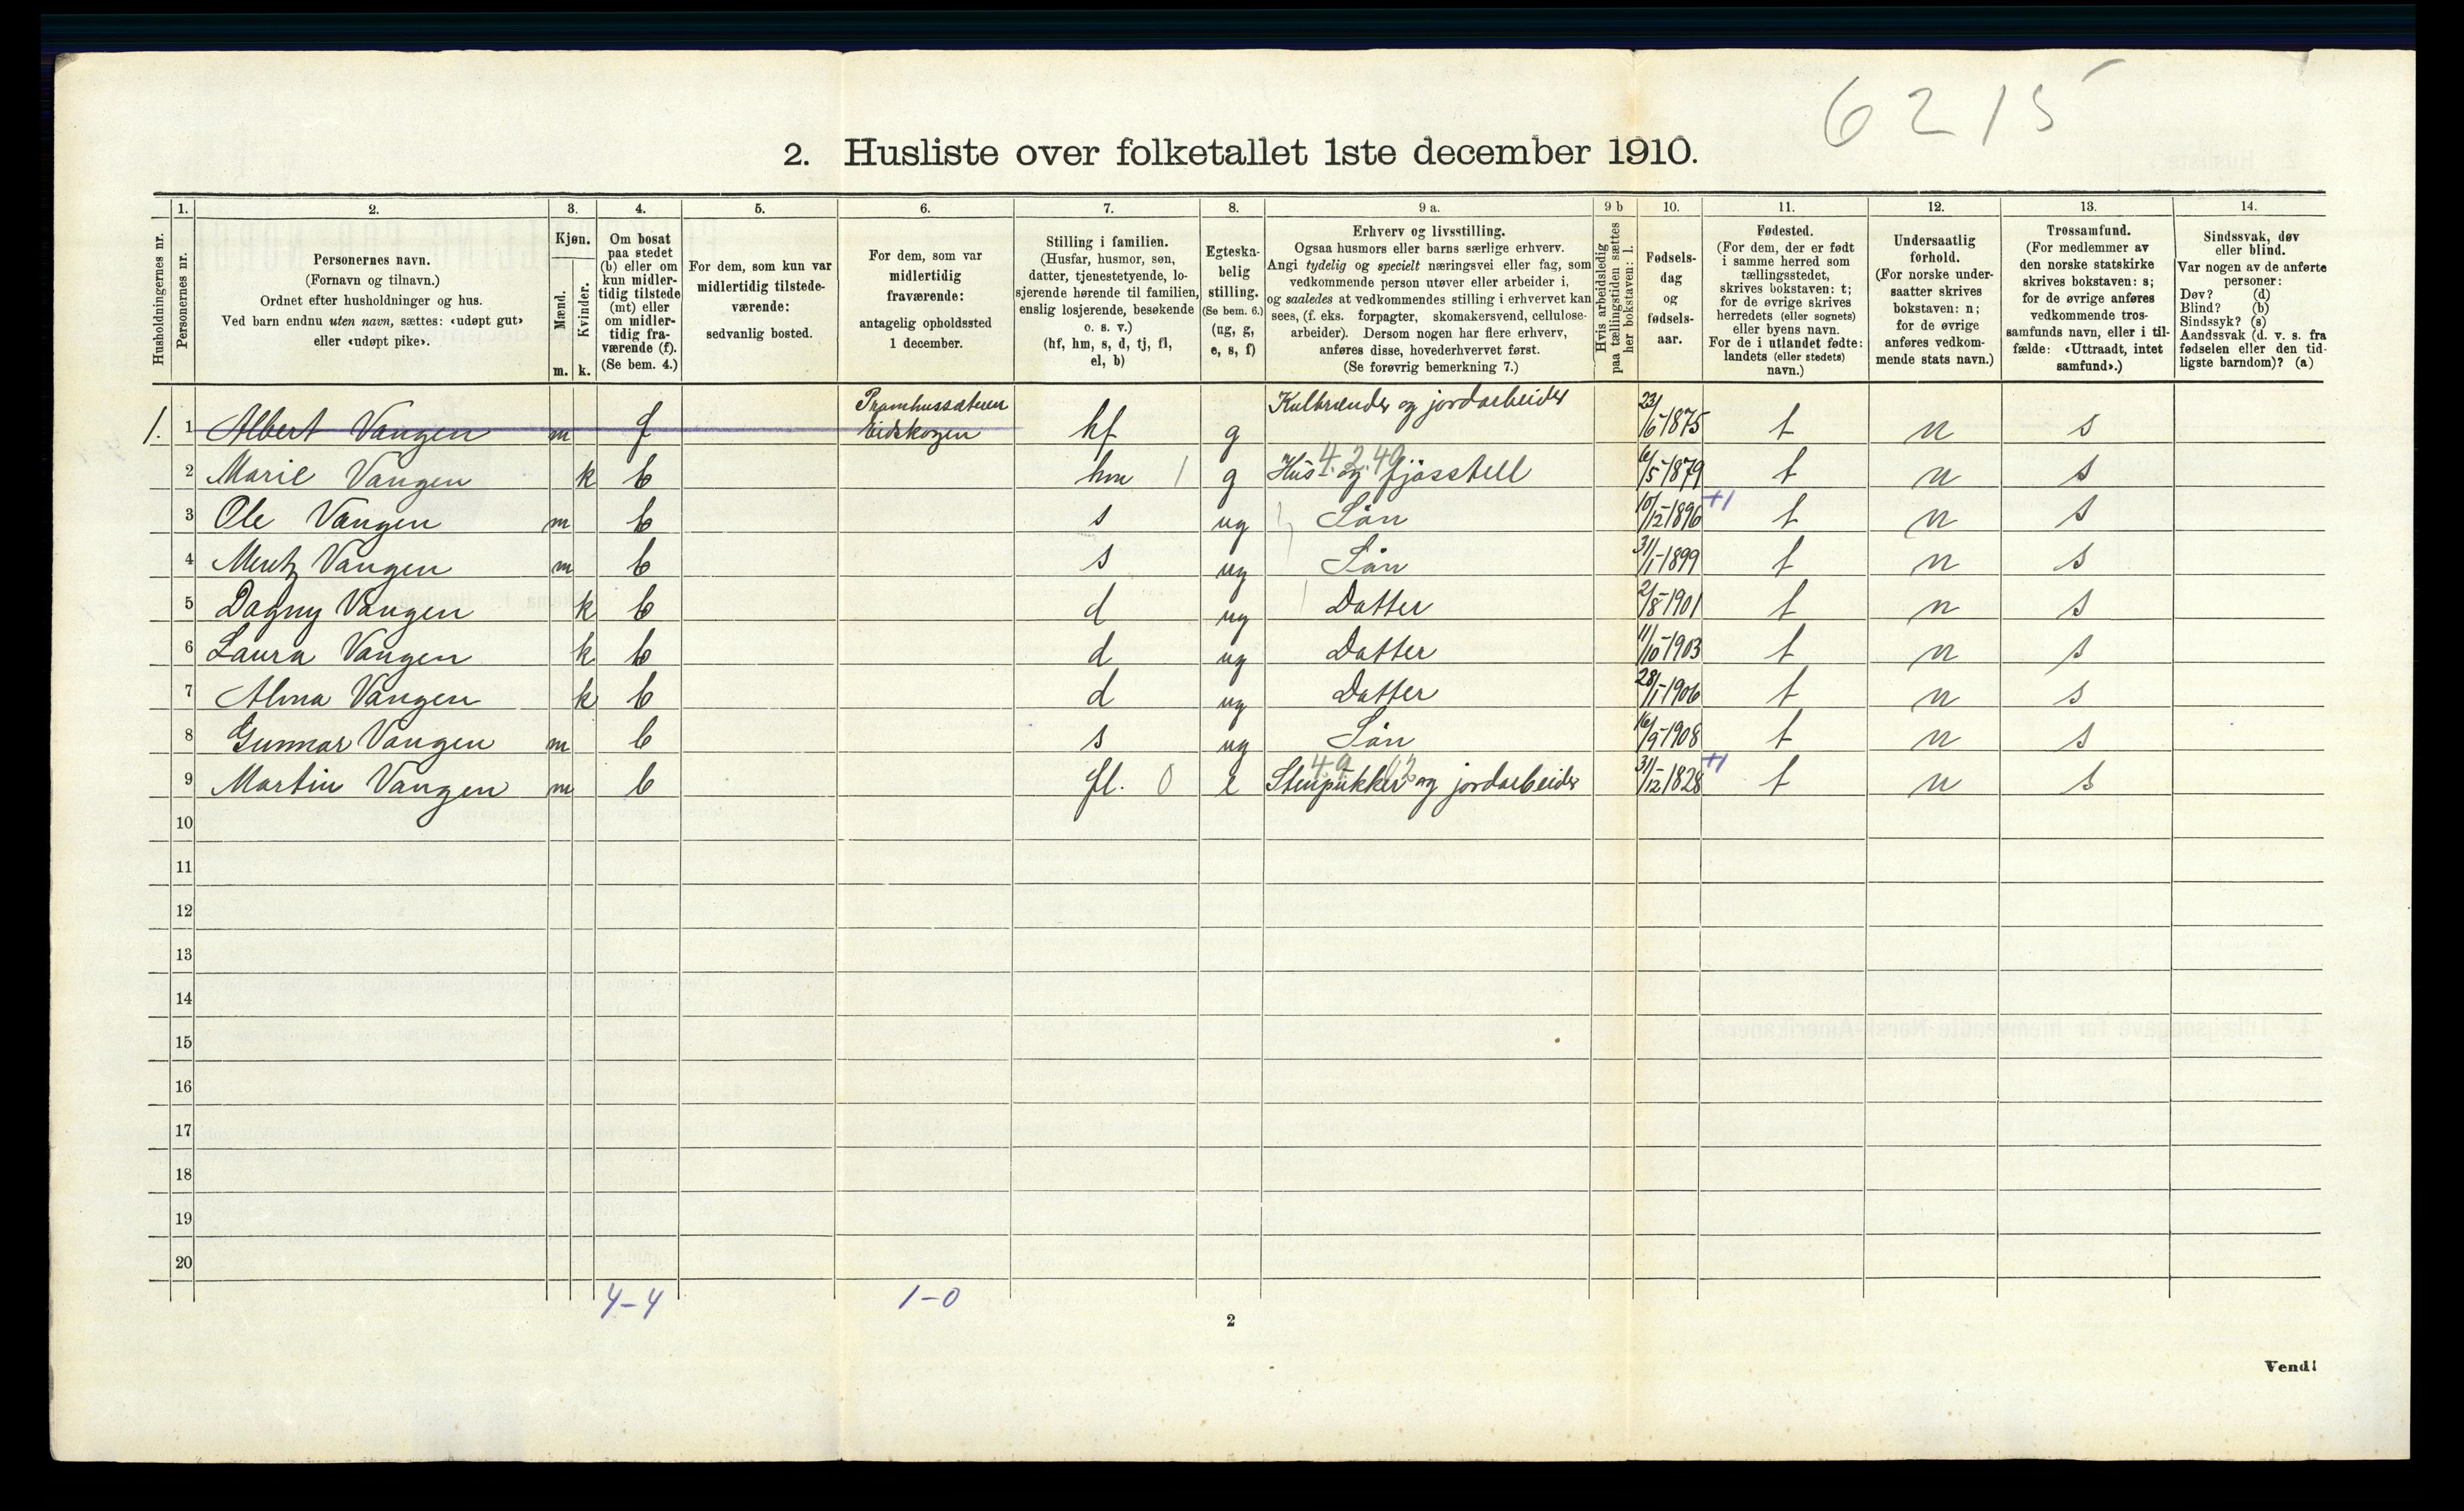 6215
2. Husliste over folketallet 1ste december 1910.
Husholdningernes nr.
1.
Personernes nr.
2.
Personernes navn.
(Fornavn og tilnavn.)
Ordnet efter husholdninger og hus.
Ved barn endnu uten navn, sættes: «udøpt gut»
eller «udøpt pike».
3.
Kjøn.
Mænd.
Kvinder.
m. k.
4.
Om bosat
paa stedet
(b) eller om
kun midler-
tidig tilstede
(mt) eller
om midler-
tidig fra-
værende (f).
(Se bem. 4.)
5.
For dem, som kun var
midlertidig tilstede-
værende:
sedvanlig bosted.
6.
For dem, som var
midlertidig
fraværende:
antagelig opholdssted
1 december.
7.
Stilling i familien.
(Husfar, husmor, søn,
datter, tjenestetyende, lo-
sjerende hørende til familien,
enslig losjerende, besøkende
o. s. v.)
(hf, hm, s, d, tj, fl,
el, b)
8.
Egteska-
belig
stilling.
(Se bem. 6.)
(ug, g,
e, s, f)
9 a.
Erhverv og livsstilling.
Ogsaa husmors eller barns særlige erhverv.
Angi tydelig og specielt næringsvei eller fag, som
vedkommende person utøver eller arbeider i,
og saaledes at vedkommendes stilling i erhvervet kan
sees, (f. eks. forpagter, skomakersvend, cellulose-
arbeider). Dersom nogen har flere erhverv,
anføres disse, hovederhvervet først.
(Se forøvrig bemerkning 7.)
9 b
Hvis arbeidsledig
paa tællingstiden sættes
her bokstaven: l.
10.
Fødsels-
dag
og
fødsels-
aar.
11.
Fødested.
(For dem, der er født
i samme herred som
tællingsstedet,
skrives bokstaven: t;
for de øvrige skrives
herredets (eller sognets)
eller byens navn.
For de i utlandet fødte:
landets (eller stedets)
navn.)
12.
Undersaatlig
forhold.
(For norske under-
saatter skrives
bokstaven: n;
for de øvrige
anføres vedkom-
mende stats navn.)
13.
Trossamfund.
(For medlemmer av
den norske statskirke
skrives bokstaven: s;
for de øvrige anføres
vedkommende tros-
samfunds navn, eller i til-
fælde: «Uttraadt, intet
samfund».)
14.
Sindssvak, døv
eller blind.
Var nogen av de anførte
personer:
Døv? (d)
Blind? (b)
Sindssyk? (s)
Aandssvak (d. v. s. fra
fødselen eller den tid-
ligste barndom)? (a)
1. 1 Albert Vangen m f Pramhussæteren Eidskogen hf g Kulbrænder og jordarbeider 23/6-1875 t n s
2 Marie Vangen k b hm 1 g Hus- og fjøsstell 4.2.49 6/5-1879 t n s
3 Ole Vangen m b s ug Sön 10/12-1896 +1 t n s
4 Mentz Vangen m b s ug Sön 31/1-1899 t n s
5 Dagny Vangen k b d ug Datter 2/8-1901 t n s
6 Laura Vangen k b d ug Datter 11/10-1903 t n s
7 Alma Vangen k b d ug Datter 28/1-1906 t n s
8 Gunnar Vangen m b s ug Sön 16/9-1908 t n s
9 Martin Vangen m b fl. 0 e Stenpukker og jordarbeider 31/12-1828 +1 t n s
10
11
12
13
14
15
16
17
18
19
20
4-4 1-0
2
Vend!